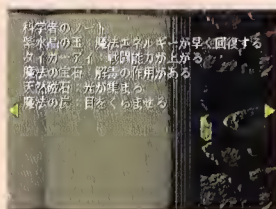 科学者のノート
紫水晶の玉：魔法エネルギーが早く回復する
タイガーアイ：戦闘能力が上がる
魔法の宝石：解毒の作用がある
天然磁石：光が集まる
魔法の炭：目をくらませる